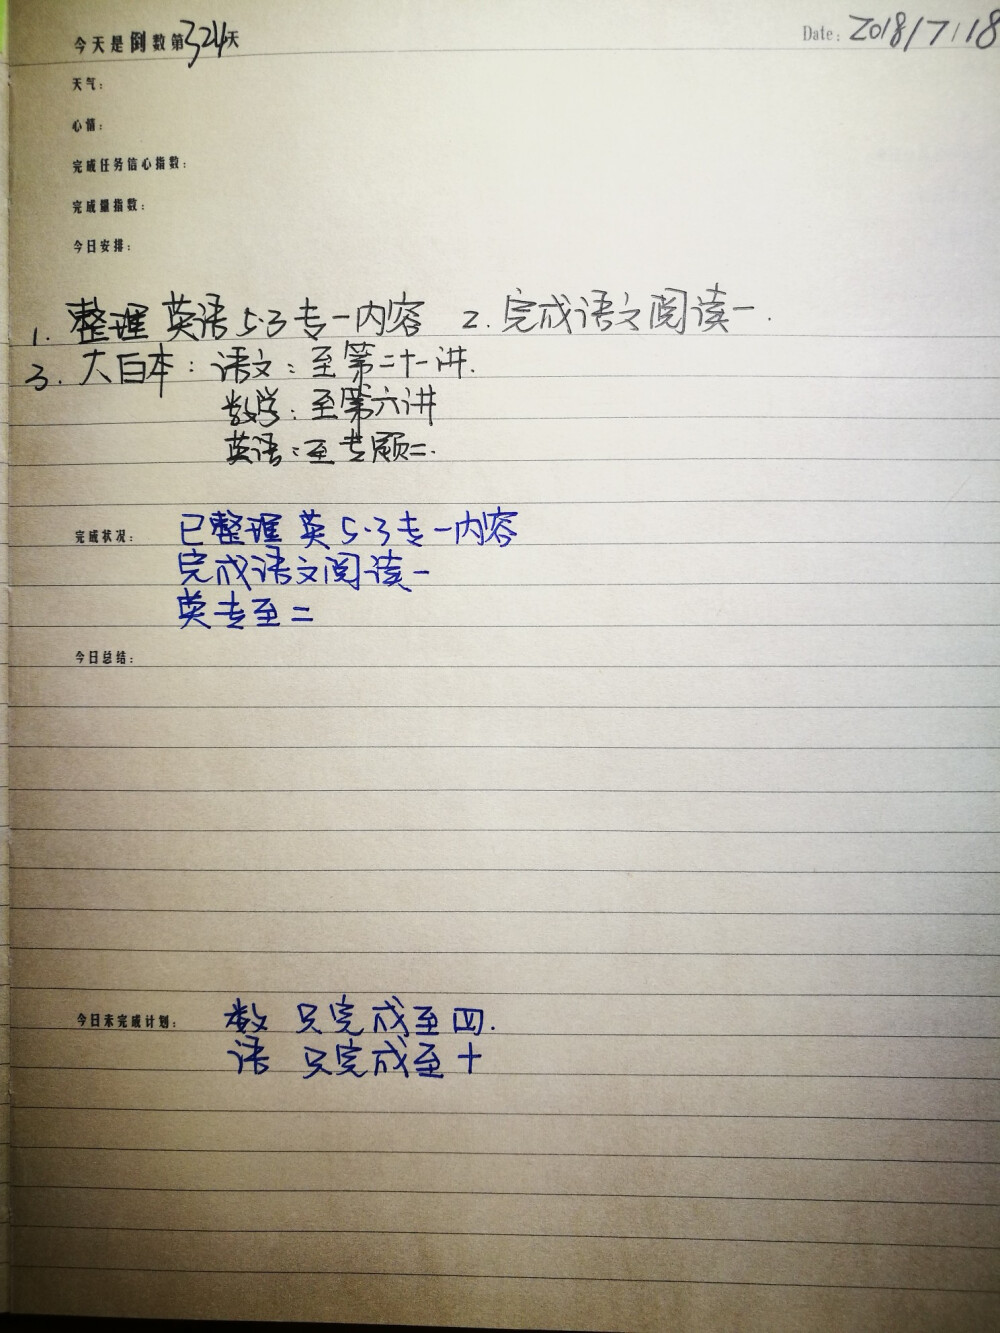 今天是倒数第324天 Date: 2018/7/18
天气:
心情:
完成任务信心指数:
完成量指数:
今日安排:
1. 整理英语5·3专一内容 2. 完成语文阅读一.
3. 大白本: 语文: 至第二十一讲.
数学: 至第六讲
英语: 至专题二.
完成状况: 已整理英5·3专一内容
完成语文阅读一
英专至二
今日总结:
今日未完成计划: 数 只完成至四.
语 只完成至十